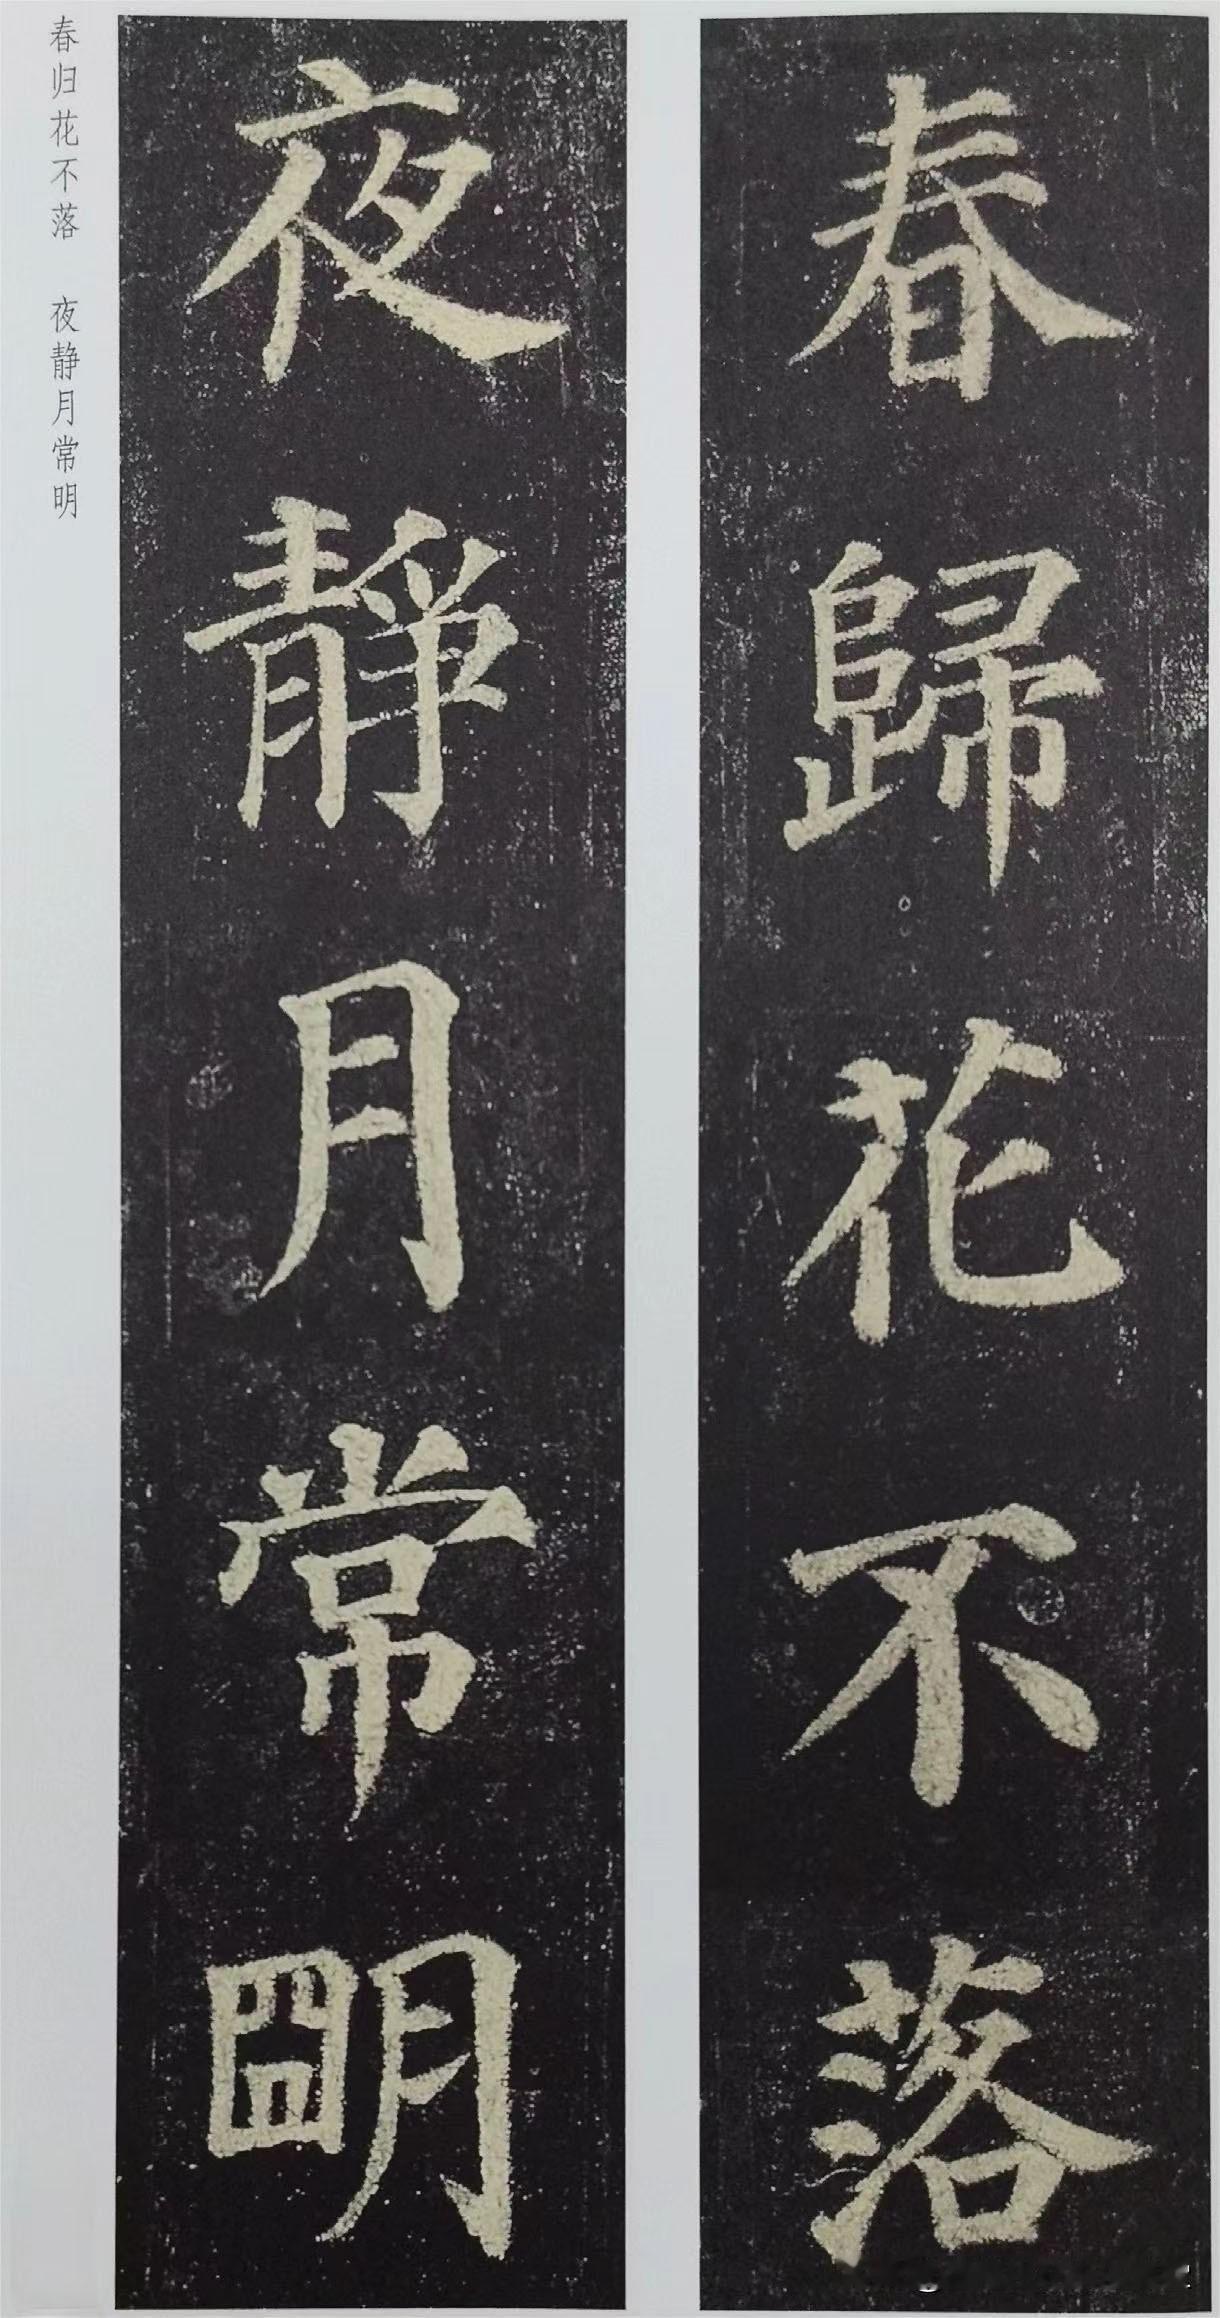 春歸花不落
夜靜月常明
春归花不落 夜静月常明